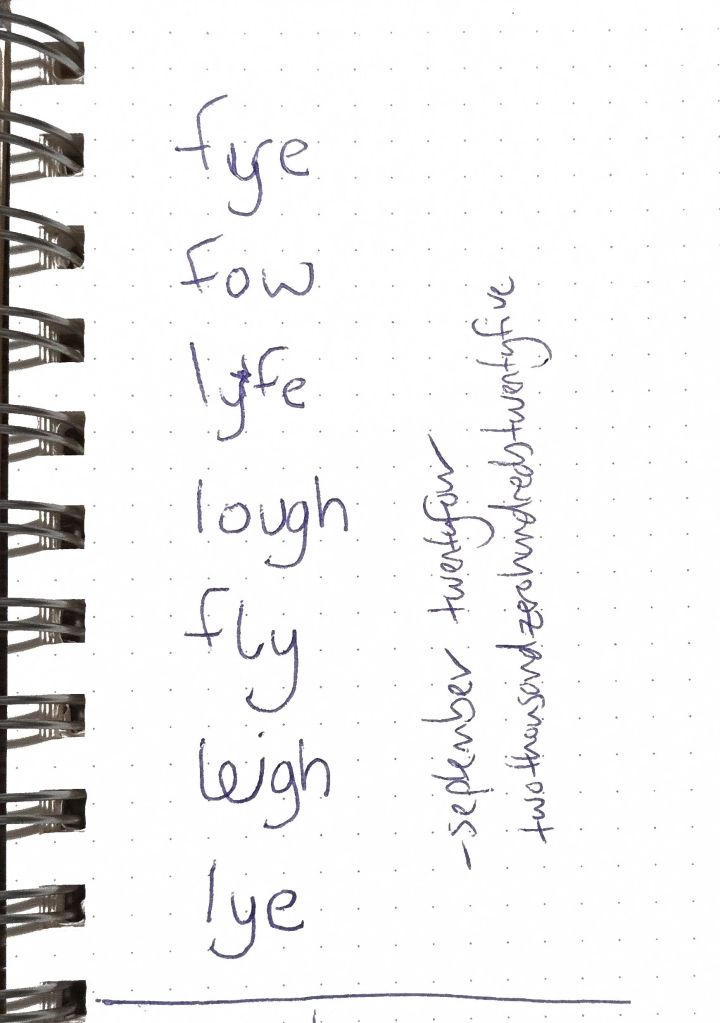 fye
fow
lyfe
lough
fly
leigh
lye
-september twentyfour
twothousandzerohundredstwentyfive